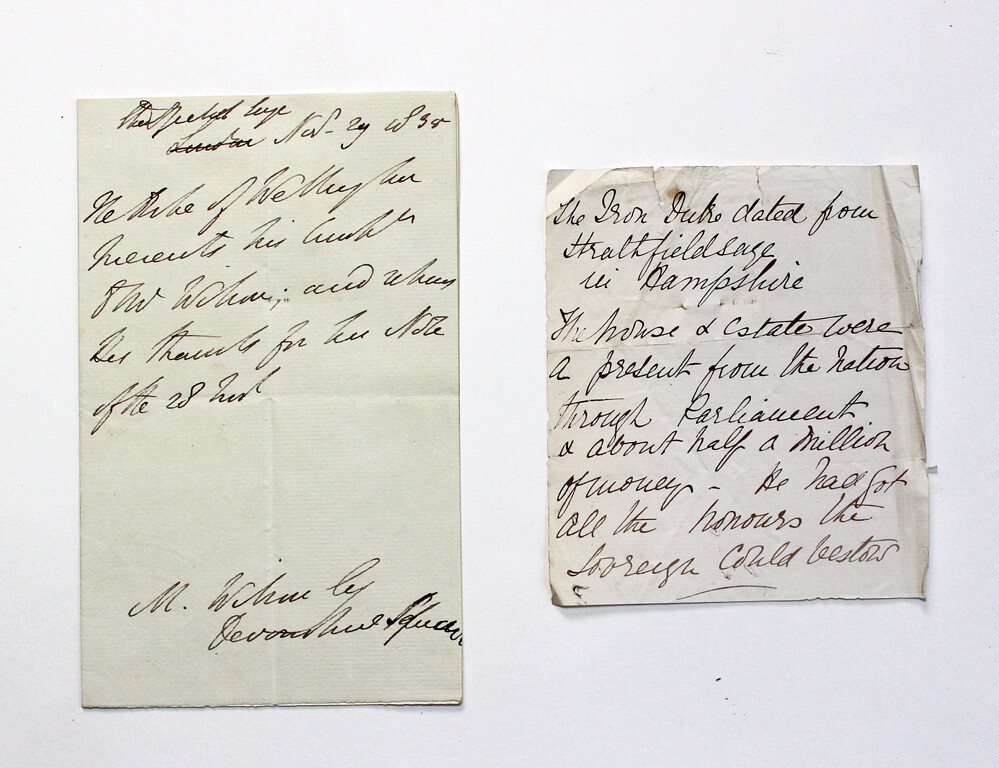 London Nov. 29 1838
The Duke of Wellington
presents his Compts
to Mr ; and returns
his thanks for his Note
of the 28 Inst
M.
Devonshire Square
The Iron Duke dated from
Strathfieldsaye
in Hampshire
The house & estate were
a present from the nation
through Parliament
& about half a million
of money - He had got
all the honours the
Sovreign could bestow